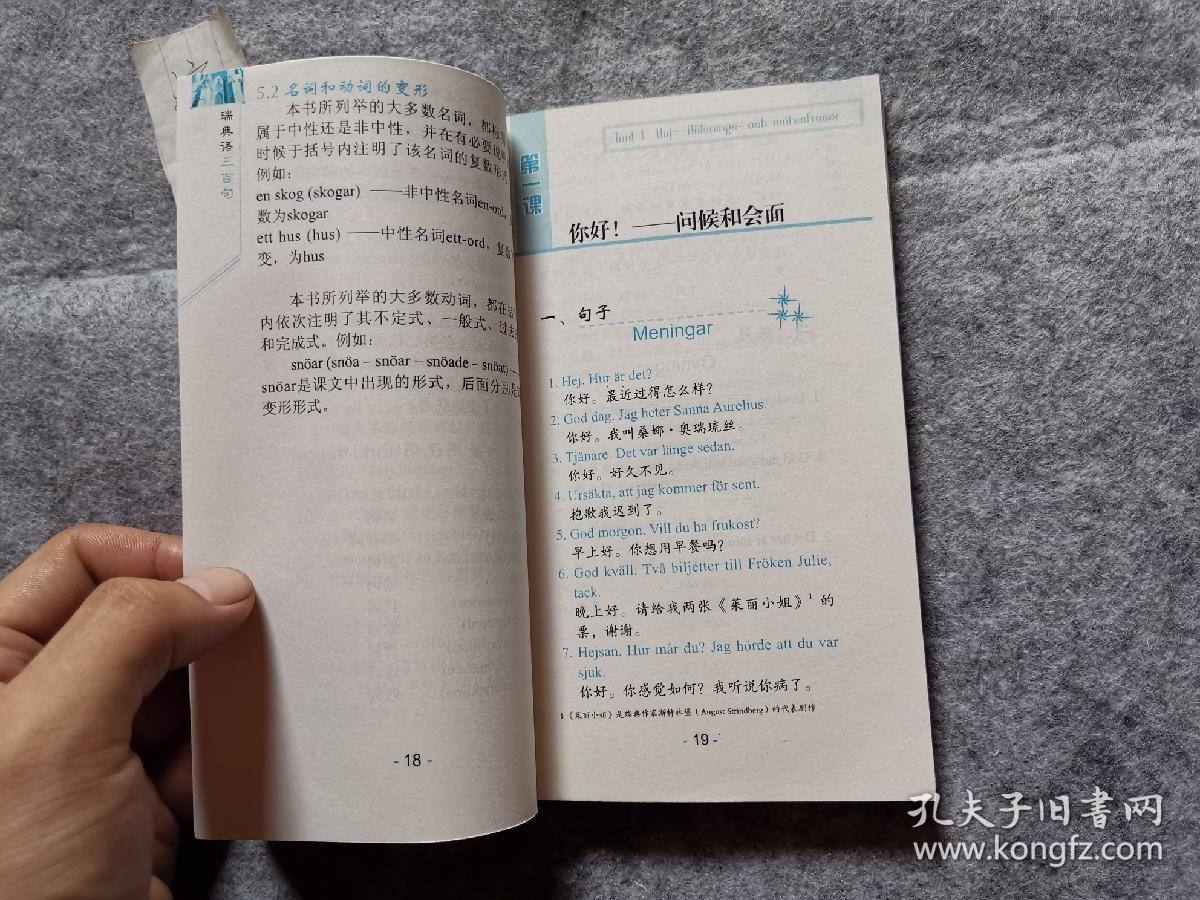 瑞典语三百句
5.2 名词和动词的变形
本书所列举的大多数名词，都标
属于中性还是非中性，并在有必要说明
时候于括号内注明了该名词的复数形
例如：
en skog (skogar) ——非中性名词en-ord，
数为skogar
ett hus (hus) ——中性名词ett-ord，复数
变，为hus
本书所列举的大多数动词，都在
内依次注明了其不定式、一般式、过去
和完成式。例如：
snöar (snöa – snöar – snöade – snöat) —
snöar是课文中出现的形式，后面分别是
变形形式。
- 18 -
第一课
你好！——问候和会面
一、句子
Meningar
1. Hej. Hur är det?
你好。最近过得怎么样？
2. God dag. Jag heter Sanna Aurelius.
你好。我叫桑娜·奥瑞琉丝。
3. Tjänare. Det var länge sedan.
你好。好久不见。
4. Ursäkta, att jag kommer för sent.
抱歉我迟到了。
5. God morgon. Vill du ha frukost?
早上好。你想用早餐吗？
6. God kväll. Två biljetter till Fröken Julie,
tack.
晚上好。请给我两张《茱丽小姐》¹ 的
票，谢谢。
7. Hejsan. Hur mår du? Jag hörde att du var
sjuk.
你好。你感觉如何？我听说你病了。
1 《茱丽小姐》是瑞典作家斯特林堡（August Strindberg）的代表剧作
- 19 -
孔夫子旧书网
www.kongfz.com